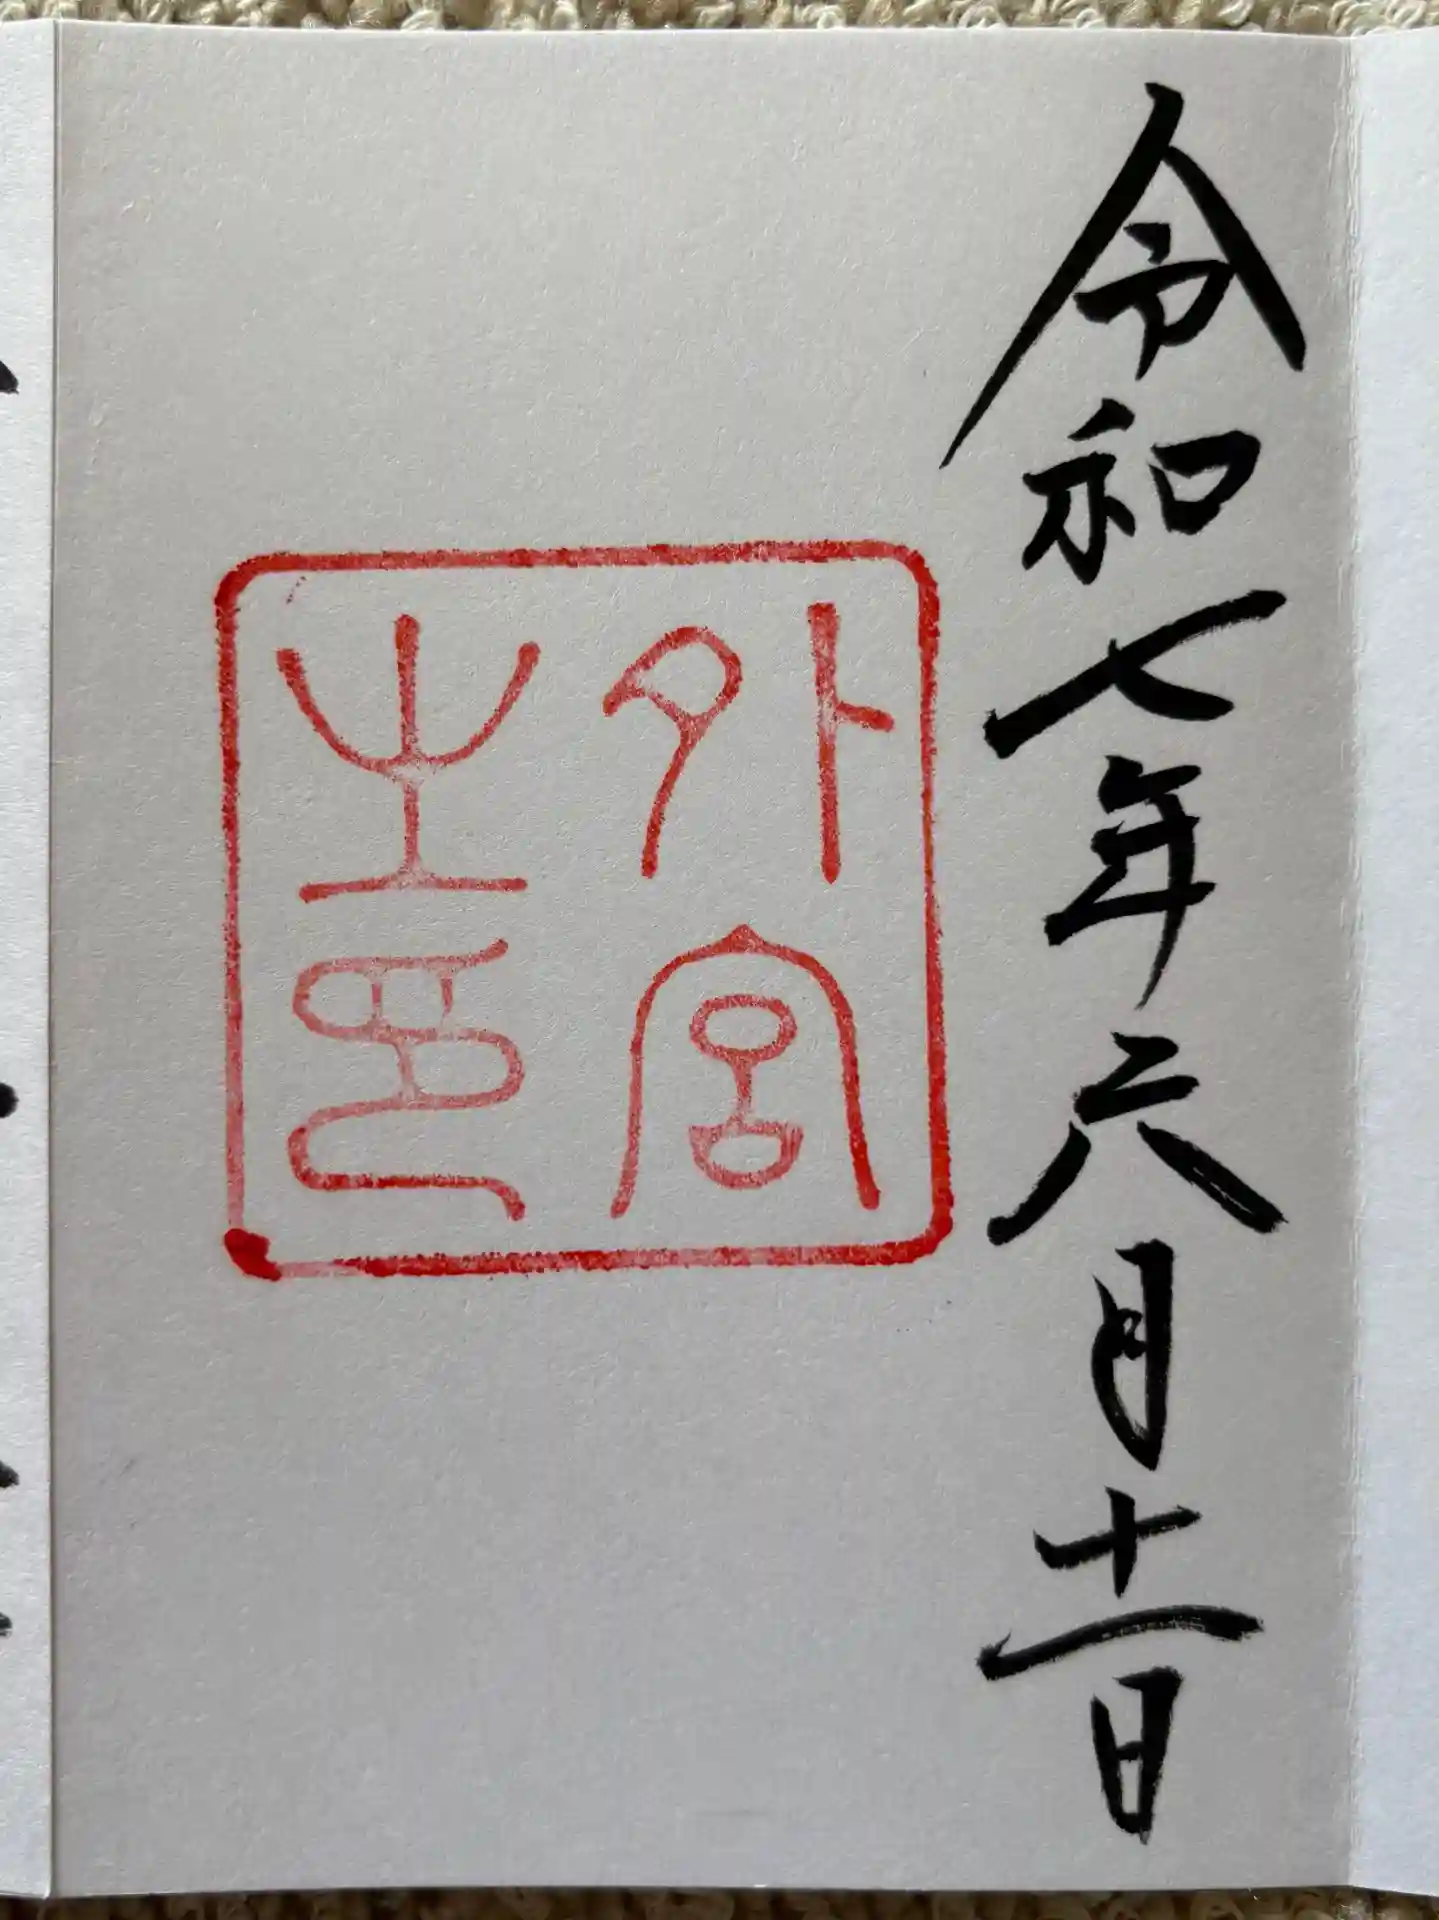 令和七年六月十一日
外宮
之印